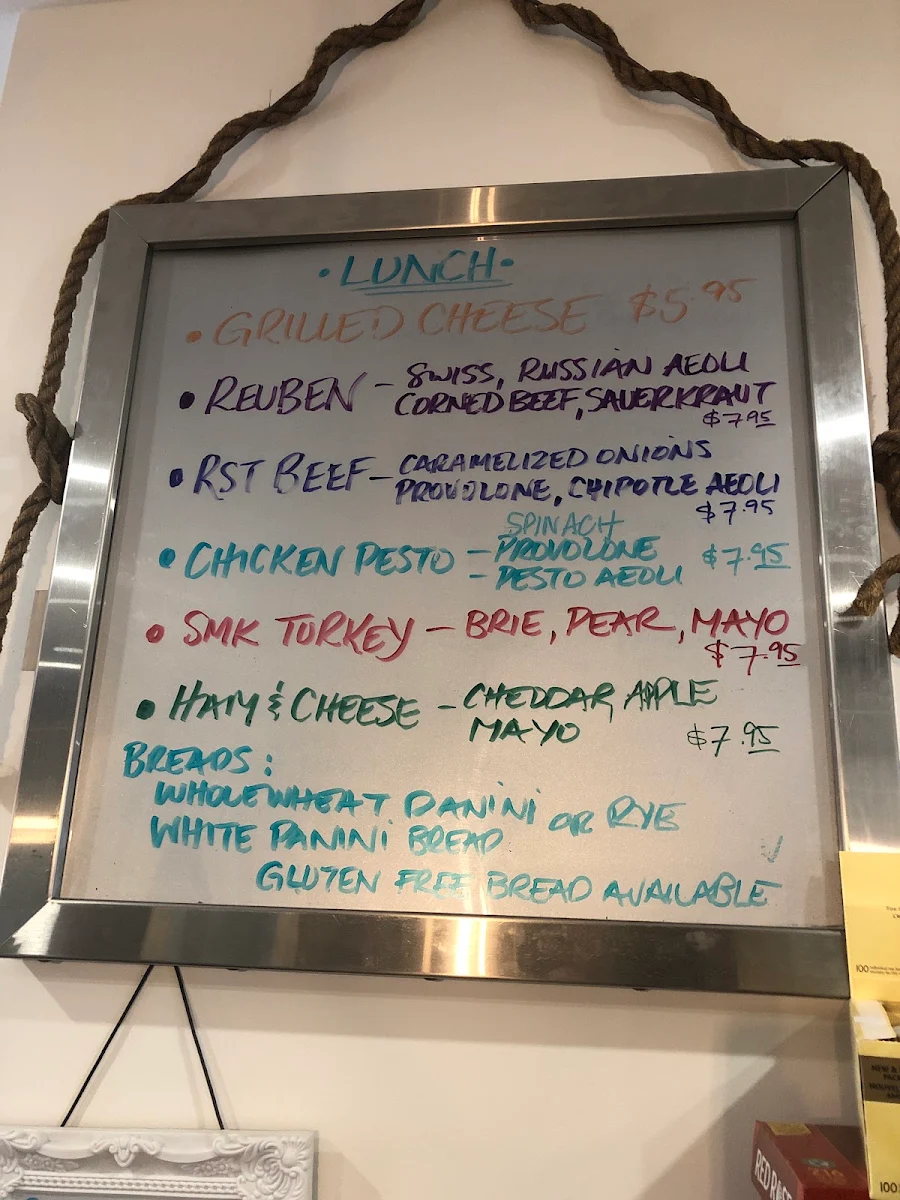 • LUNCH •
• GRILLED CHEESE $5.95
• REUBEN – SWISS, RUSSIAN AEOLI
CORNED BEEF, SAUERKRAUT
$7.95
• RST BEEF – CARAMELIZED ONIONS
PROVOLONE, CHIPOTLE AEOLI
$7.95
SPINACH
• CHICKEN PESTO – PROVOLONE $7.95
– PESTO AEOLI
• SMK TURKEY – BRIE, PEAR, MAYO
$7.95
• HAM & CHEESE – CHEDDAR, APPLE
MAYO $7.95
BREADS:
WHOLEWHEAT PANINI OR RYE
WHITE PANINI BREAD
GLUTEN FREE BREAD AVAILABLE
100
100